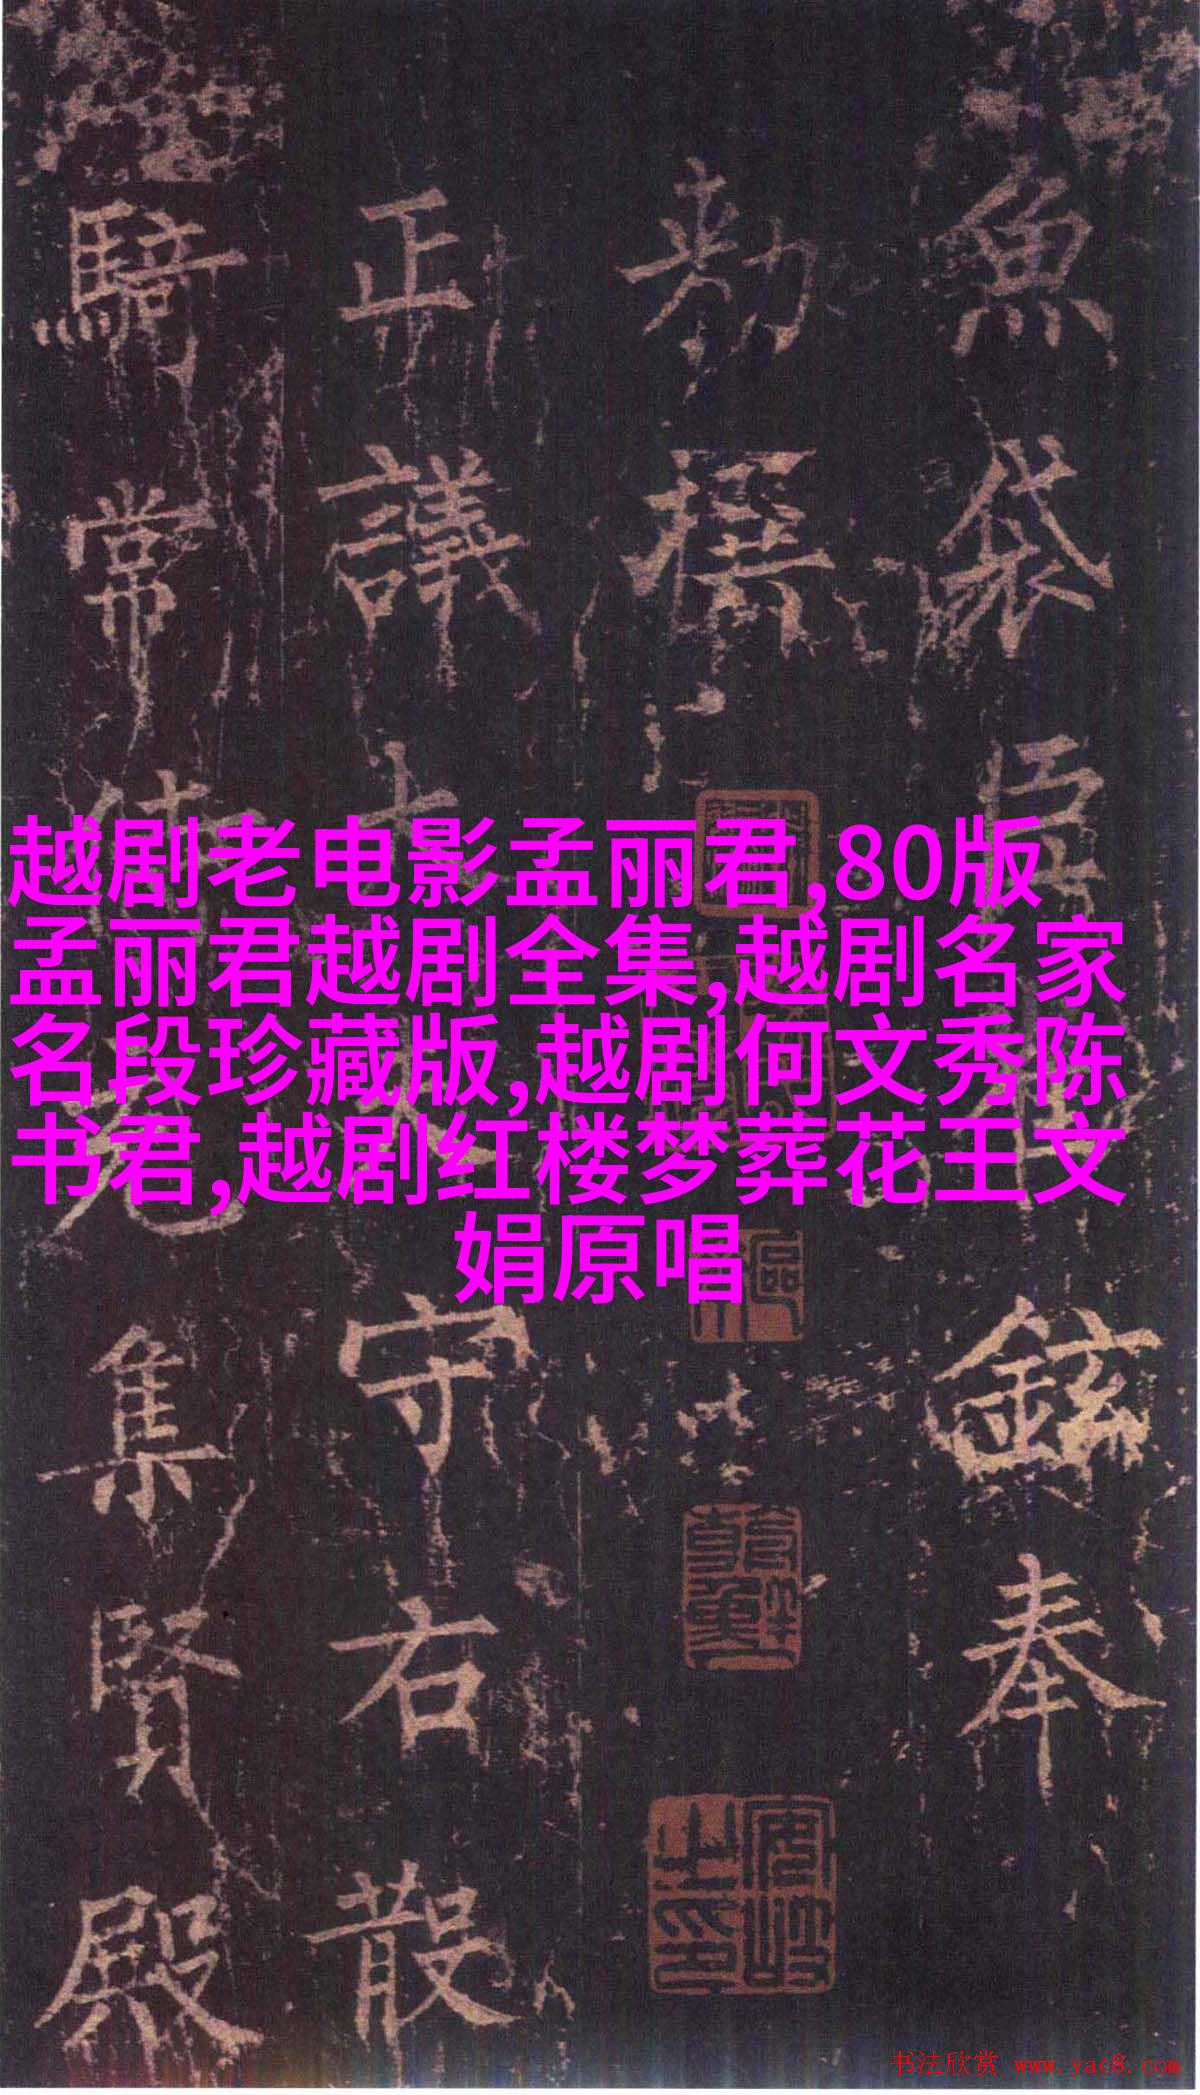 越剧老电影孟丽君,80版
孟丽君越剧全集,越剧名家
名段珍藏版,越剧何文秀陈
书君,越剧红楼梦葬花王文
娟原唱
魚袋臣鉉奉
勑撰
正議大夫守右散
騎常侍充集賢殿
书法欣赏 www.yac8.com